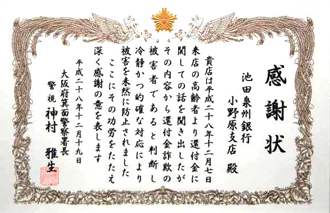 感謝状
池田泉州銀行
小野原支店 殿
貴店は平成二十八年十二月七日
来店の高齢者より還付金に
関しての話を聞き出したが
その内容から還付金詐欺の
被害者であると判断し
冷静かつ的確な対応により
被害を未然に防止されました
ここにその功労をたたえ
深く感謝の意を表します
平成二十八年十二月十九日
大阪府箕面警察署長
警視 神村 雅生